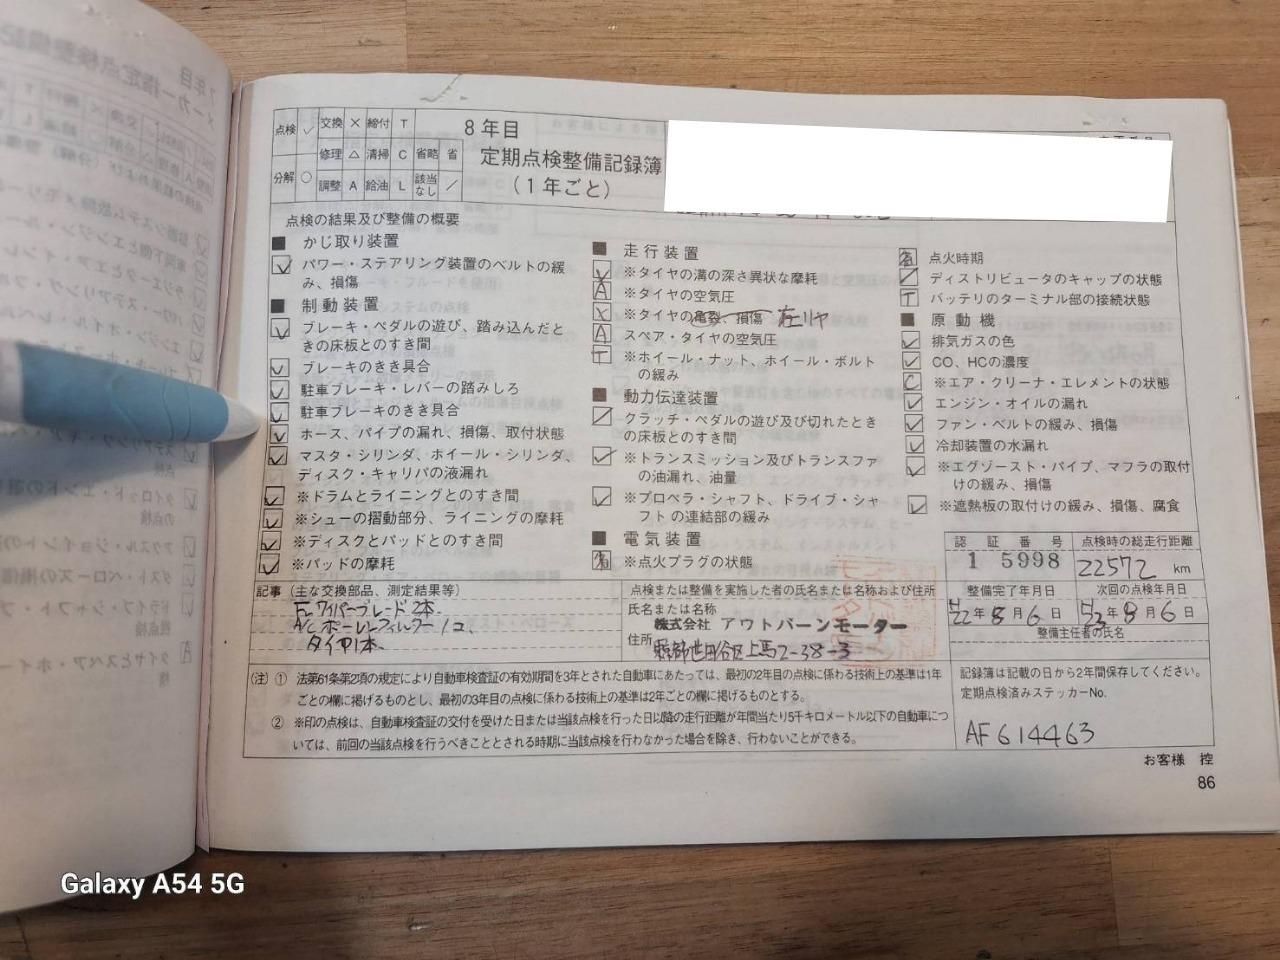 点検 ✓ 交換 × 締付 T
修理 △ 清掃 C 省略 省
分解 ○ 調整 A 給油 L 該当なし ／
8年目
定期点検整備記録簿
(1年ごと)
点検の結果及び整備の概要
■ かじ取り装置
✓ パワー・ステアリング装置のベルトの緩
み、損傷
■ 制動装置
✓ ブレーキ・ペダルの遊び、踏み込んだと
きの床板とのすき間
✓ ブレーキのきき具合
✓ 駐車ブレーキ・レバーの踏みしろ
✓ 駐車ブレーキのきき具合
✓ ホース、パイプの漏れ、損傷、取付状態
✓ マスタ・シリンダ、ホイール・シリンダ、
ディスク・キャリパの液漏れ
✓ ※ドラムとライニングとのすき間
✓ ※シューの摺動部分、ライニングの摩耗
✓ ※ディスクとパッドとのすき間
✓ ※パッドの摩耗
■ 走行装置
✓ ※タイヤの溝の深さ異状な摩耗
A ※タイヤの空気圧
× ※タイヤの亀裂、損傷 左リヤ
A スペア・タイヤの空気圧
T ※ホイール・ナット、ホイール・ボルト
の緩み
■ 動力伝達装置
／ クラッチ・ペダルの遊び及び切れたとき
の床板とのすき間
✓ ※トランスミッション及びトランスファ
の油漏れ、油量
✓ ※プロペラ・シャフト、ドライブ・シャ
フトの連結部の緩み
■ 電気装置
省 ※点火プラグの状態
省 点火時期
／ ディストリビュータのキャップの状態
T バッテリのターミナル部の接続状態
■ 原動機
✓ 排気ガスの色
✓ CO、HCの濃度
C ※エア・クリーナ・エレメントの状態
✓ エンジン・オイルの漏れ
✓ ファン・ベルトの緩み、損傷
✓ 冷却装置の水漏れ
✓ ※エグゾースト・パイプ、マフラの取付
けの緩み、損傷
✓ ※遮熱板の取付けの緩み、損傷、腐食
記事 (主な交換部品、測定結果等)
ワイパーブレード 2本.
A/C ポーレンフィルター 1コ.
タイヤ1本.
点検または整備を実施した者の氏名または名称および住所
氏名または名称
株式会社 アウトバーンモーター
住所 東京都世田谷区上馬2-38-3
認証番号
1 5998
点検時の総走行距離
22572 km
整備完了年月日
H22年8月6日
次回の点検年月日
H23年8月6日
整備主任者の氏名
(注) ① 法第61条第2項の規定により自動車検査証の有効期間を3年とされた自動車にあたっては、最初の2年目の点検に係わる技術上の基準は1年
ごとの欄に掲げるものとし、最初の3年目の点検に係わる技術上の基準は2年ごとの欄に掲げるものとする。
② ※印の点検は、自動車検査証の交付を受けた日または当該点検を行った日以降の走行距離が年間当たり5千キロメートル以下の自動車につ
いては、前回の当該点検を行うべきこととされる時期に当該点検を行わなかった場合を除き、行わないことができる。
記録簿は記載の日から2年間保存してください。
定期点検済みステッカーNo.
AF614463
お客様 控
86
Galaxy A54 5G